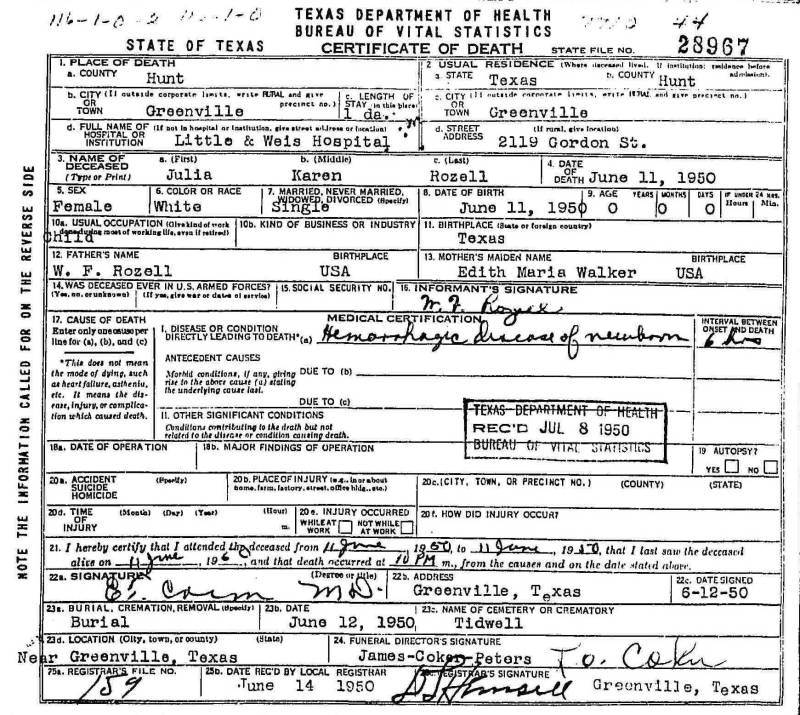 116-1-0-2 116-1-0
TEXAS DEPARTMENT OF HEALTH
BUREAU OF VITAL STATISTICS
44
STATE OF TEXAS CERTIFICATE OF DEATH STATE FILE NO. 28967
1. PLACE OF DEATH
a. COUNTY Hunt
2 USUAL RESIDENCE (Where deceased lived. If institution: residence before admission).
a. STATE Texas b. COUNTY Hunt
b. CITY (If outside corporate limits, write RURAL and give precinct no.)
OR
TOWN Greenville
c. LENGTH OF
STAY (in this place)
1 da.
c. CITY (If outside corporate limits, write RURAL and give precinct no.)
OR
TOWN Greenville
d. FULL NAME OF (If not in hospital or institution, give street address or location)
HOSPITAL OR
INSTITUTION Little & Weis Hospital
d. STREET (If rural, give location)
ADDRESS 2119 Gordon St.
3. NAME OF
DECEASED
(Type or Print)
a. (First) b. (Middle) c. (Last)
Julia Karen Rozell
4. DATE
OF
DEATH June 11, 1950
5. SEX
Female
6. COLOR OR RACE
White
7. MARRIED, NEVER MARRIED,
WIDOWED, DIVORCED (Specify)
Single
8. DATE OF BIRTH
June 11, 1950
9. AGE YEARS MONTHS DAYS IF UNDER 24 HRS.
Hours Min.
0 0 0
10a. USUAL OCCUPATION (Give kind of work
done during most of working life, even if retired)
Child
10b. KIND OF BUSINESS OR INDUSTRY
11. BIRTHPLACE (State or foreign country)
Texas
12. FATHER'S NAME BIRTHPLACE
W. F. Rozell USA
13. MOTHER'S MAIDEN NAME BIRTHPLACE
Edith Maria Walker USA
14. WAS DECEASED EVER IN U.S. ARMED FORCES?
(Yes, no, or unknown) (If yes, give war or dates of service)
15. SOCIAL SECURITY NO.
16. INFORMANT'S SIGNATURE
W. F. Rozell
17. CAUSE OF DEATH
Enter only one cause per
line for (a), (b), and (c)
*This does not mean
the mode of dying, such
as heart failure, asthenia,
etc. It means the dis-
ease, injury, or complica-
tion which caused death.
MEDICAL CERTIFICATION
I. DISEASE OR CONDITION
DIRECTLY LEADING TO DEATH*(a) Hemorrhagic disease of newborn
INTERVAL BETWEEN
ONSET AND DEATH
6 hrs
ANTECEDENT CAUSES
Morbid conditions, if any, giving
rise to the above cause (a) stating
the underlying cause last.
DUE TO (b)
DUE TO (c)
II. OTHER SIGNIFICANT CONDITIONS
Conditions contributing to the death but not
related to the disease or condition causing death.
TEXAS DEPARTMENT OF HEALTH
REC'D JUL 8 1950
BUREAU OF VITAL STATISTICS
18a. DATE OF OPERATION
18b. MAJOR FINDINGS OF OPERATION
19 AUTOPSY?
YES NO
20a. ACCIDENT (Specify)
SUICIDE
HOMICIDE
20b. PLACE OF INJURY (e.g., in or about
home, farm, factory, street, office bldg., etc.)
20c. (CITY, TOWN, OR PRECINCT NO.) (COUNTY) (STATE)
20d. TIME (Month) (Day) (Year) (Hour)
OF
INJURY m.
20e. INJURY OCCURRED
WHILE AT WORK NOT WHILE AT WORK
20f. HOW DID INJURY OCCUR?
21. I hereby certify that I attended the deceased from 11 June, 1950, to 11 June, 1950, that I last saw the deceased
alive on 11 June, 1950, and that death occurred at 10 PM m., from the causes and on the date stated above.
22a. SIGNATURE (Degree or title)
MD.
22b. ADDRESS
Greenville, Texas
22c. DATE SIGNED
6-12-50
23a. BURIAL, CREMATION, REMOVAL (Specify)
Burial
23b. DATE
June 12, 1950
23c. NAME OF CEMETERY OR CREMATORY
Tidwell
23d. LOCATION (City, town, or county) (State)
Near Greenville, Texas
24. FUNERAL DIRECTOR'S SIGNATURE
James-Coker-Peters T. O. Coker
25a. REGISTRAR'S FILE NO.
159
25b. DATE REC'D BY LOCAL REGISTRAR
June 14 1950
25c. REGISTRAR'S SIGNATURE
Greenville, Texas
NOTE THE INFORMATION CALLED FOR ON THE REVERSE SIDE